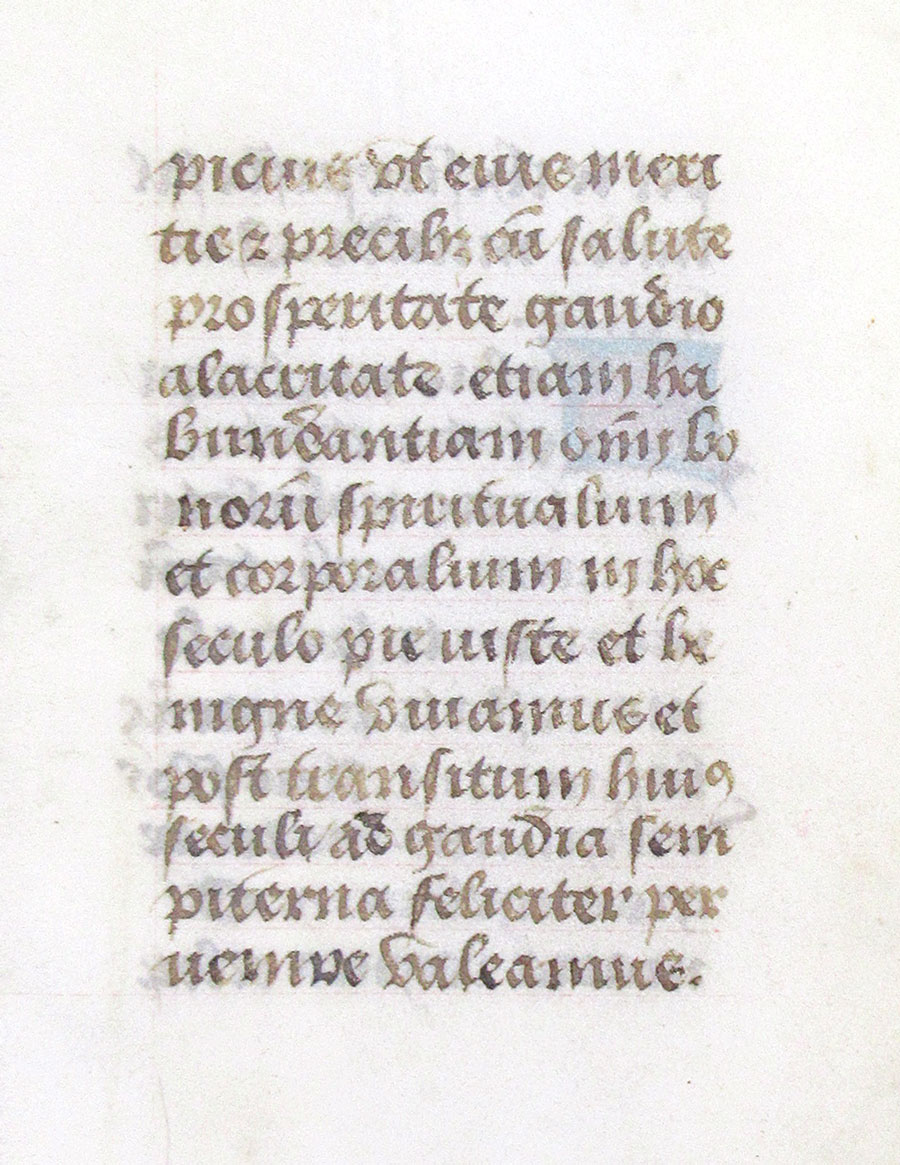 picimus vt eius meri
tis ⁊ precibꝫ cū salute
prosperitate gaudio
alacritate etiam ha
bundantiam om̄i bo
norū spiritualium
et corporalium in hoc
seculo pie iuste et be
nigne viuamus et
post transitum huiꝰ
seculi ad gaudia sem
piterna feliciter per
uenire valeamus.